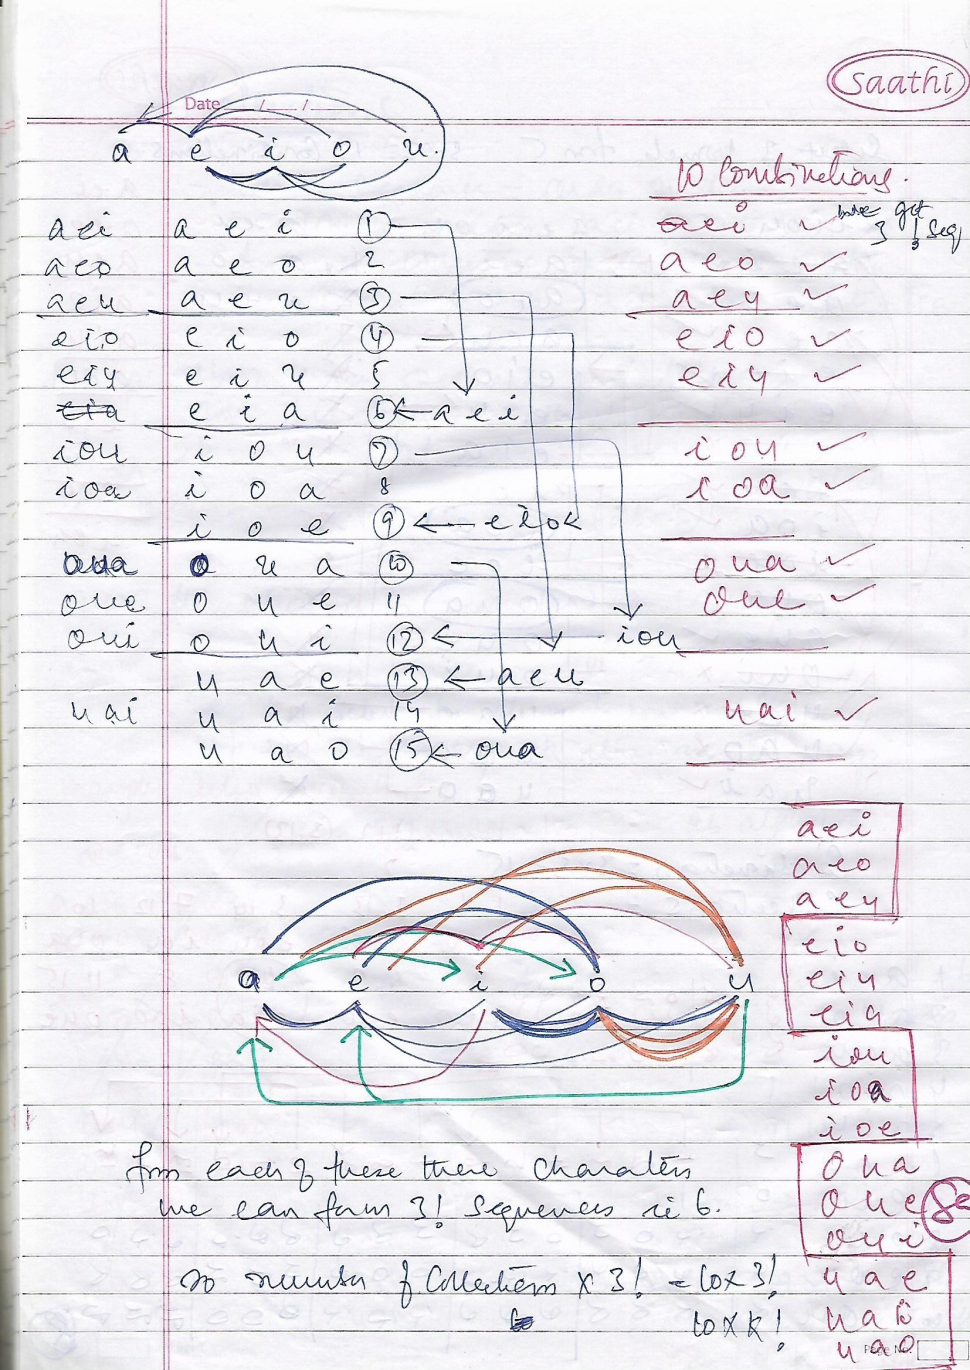 saathi
Date / /
a e i o u.
10 Combinations.
aei a e i 1 aei ✓ get 3! Seq
aeo a e o 2 aeo ✓
aeu a e u 3 aeu ✓
eio e i o 4 eio ✓
eiu e i u 5 eiu ✓
eia e i a 6 ← aei
iou i o u 7 iou ✓
ioa i o a 8 ioa ✓
i o e 9 ← eio
oua o u a 10 oua ✓
oue o u e 11 oue ✓
oui o u i 12 ← iou
u a e 13 ← aeu
uai u a i 14 uai ✓
u a o 15 ← oua
aei
aeo
aeu
eio
eiu
a e i o u
eia
iou
ioa
ioe
from each of these three charaters oua
we can form 3! Sequences ie 6. oue Se
oui
so number of Collections x 3! = 10x3! uae
10xk! uai
uao
Page No.